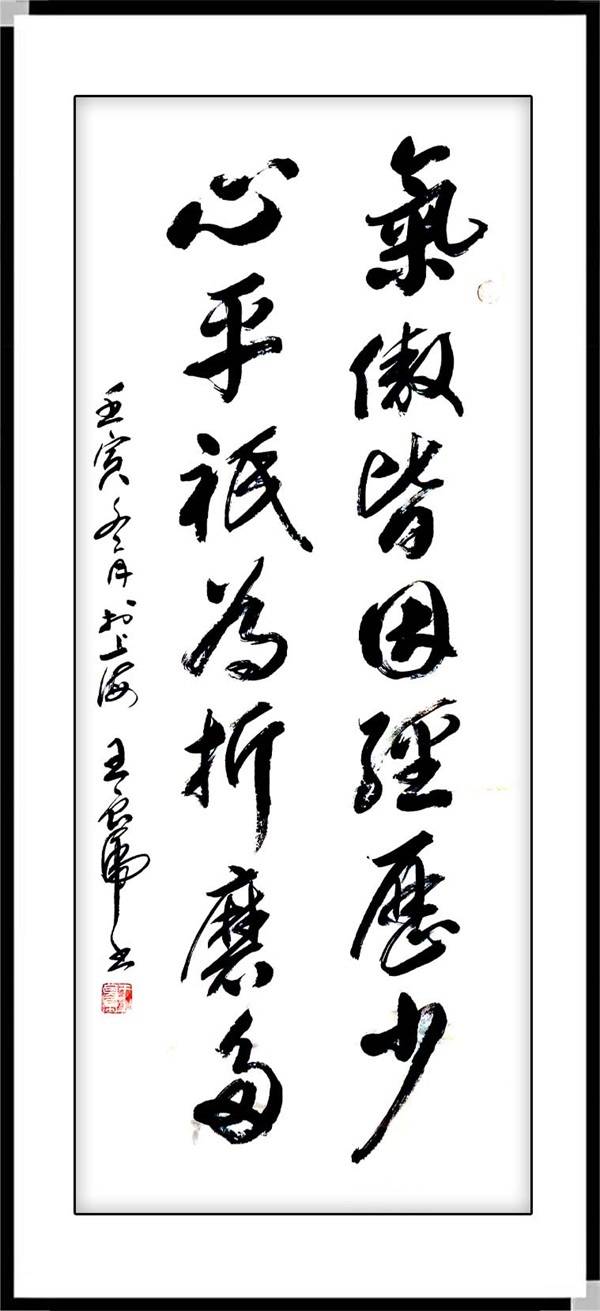 氣傲皆因經歷少
心平祇為折磨多
壬寅冬月於上海 王良虎書